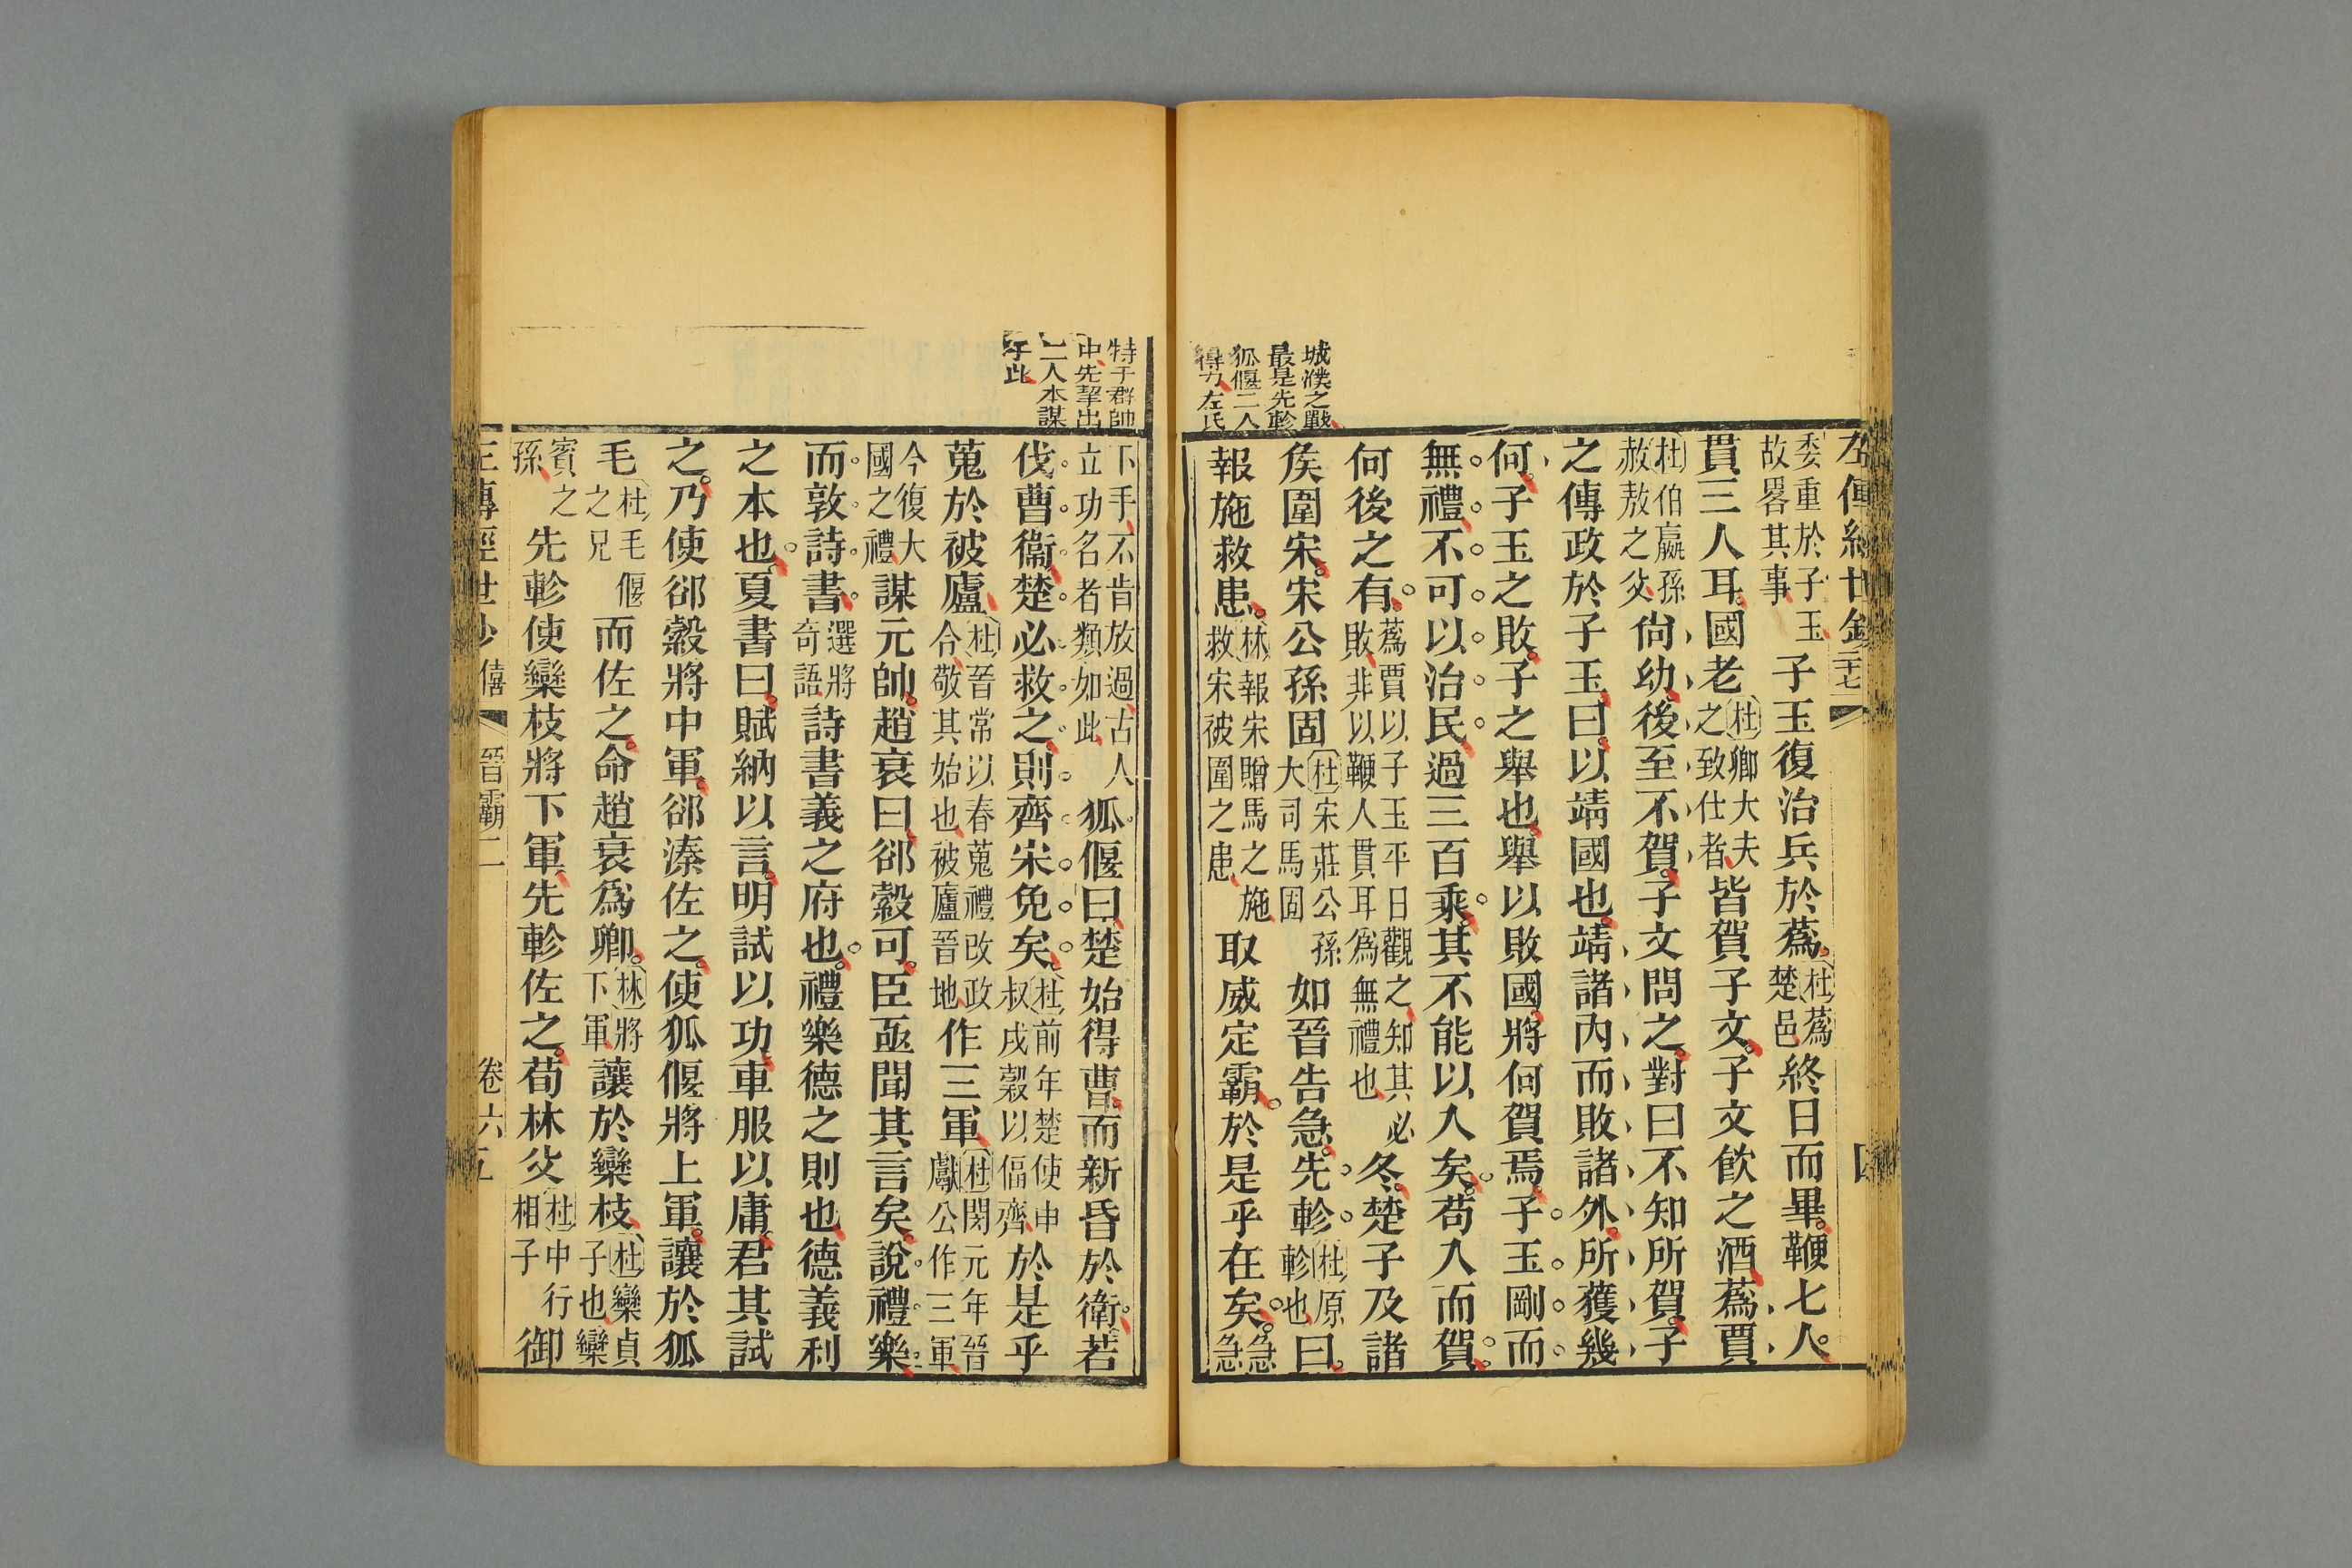 城濮之戰
最是先軫
狐偃二人
得力左氏
委重於子玉
故畧其事
子玉復治兵於蔿杜蔿
楚邑終日而畢鞭七人
貫三人耳國老杜卿大夫
之致仕者皆賀子文子文飲之酒蔿賈
杜伯嬴孫
叔敖之父尚幼後至不賀子文問之對曰不知所賀子
之傳政於子玉曰以靖國也靖諸內而敗諸外所獲幾
何子玉之敗子之舉也舉以敗國將何賀焉子玉剛而
無禮不可以治民過三百乘其不能以入矣苟入而賀
何後之有蔿賈以子玉平日觀之知其必
敗非以鞭人貫耳爲無禮也冬楚子及諸
矦圍宋宋公孫固杜宋莊公孫
大司馬固如晉告急先軫杜原
軫也曰
報施救患林報宋贈馬之施
救宋被圍之患取威定霸於是乎在矣急
急
特于群帥
中先挈出
二人本謀
于此
下手不肯放過古人
立功名者類如此狐偃曰楚始得曹而新昏於衛若
伐曹衞楚必救之則齊宋免矣杜前年楚使申
叔戌穀以偪齊於是乎
蒐於被廬杜晉常以春蒐禮改政
令敬其始也被廬晉地作三軍杜閔元年晉
獻公作二軍
今復大
國之禮謀元帥趙衰曰郤縠可臣亟聞其言矣說禮樂
而敦詩書選將
奇語詩書義之府也禮樂德之則也德義利
之本也夏書曰賦納以言明試以功車服以庸君其試
之乃使郤縠將中軍郤溱佐之使狐偃將上軍讓於狐
毛杜毛偃
之兄而佐之命趙衰爲卿林將
下軍讓於欒枝杜欒貞
子也欒
賓之
孫先軫使欒枝將下軍先軫佐之荀林父杜中行
相子御
左傳經世鈔 僖 晉霸二 卷六 五